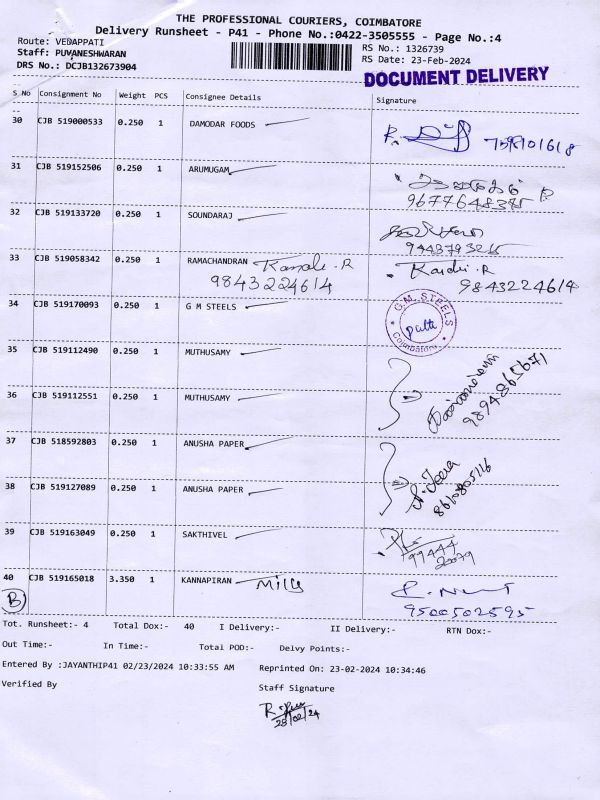 THE PROFESSIONAL COURIERS, COIMBATORE
Delivery Runsheet - P41 - Phone No.:0422-3505555 - Page No.:4
Route: VEDAPPATI
RS No.: 1326739
Staff: PUVANESHWARAN
RS Date: 23-Feb-2024
DRS No.: DCJB132673904
DOCUMENT DELIVERY
S No Consignment No Weight PCS Consignee Details Signature
30 CJB 519000533 0.250 1 DAMODAR FOODS
31 CJB 519152506 0.250 1 ARUMUGAM
9677648375
32 CJB 519133720 0.250 1 SOUNDARAJ
33 CJB 519058342 0.250 1 RAMACHANDRAN
9843224614 9843224614
34 CJB 519170093 0.250 1 G M STEELS
G.M. STEELS
Coimbatore
35 CJB 519112490 0.250 1 MUTHUSAMY
9894865671
36 CJB 519112551 0.250 1 MUTHUSAMY
37 CJB 518592803 0.250 1 ANUSHA PAPER
8610805116
38 CJB 519127089 0.250 1 ANUSHA PAPER
39 CJB 519163049 0.250 1 SAKTHIVEL
99444
22079
40 CJB 519165018 3.350 1 KANNAPIRAN Mills
B
9500502595
Tot. Runsheet:- 4 Total Dox:- 40 I Delivery:- II Delivery:- RTN Dox:-
Out Time:- In Time:- Total POD:- Delvy Points:-
Entered By :JAYANTHIP41 02/23/2024 10:33:55 AM Reprinted On: 23-02-2024 10:34:46
Verified By Staff Signature
23/02/24